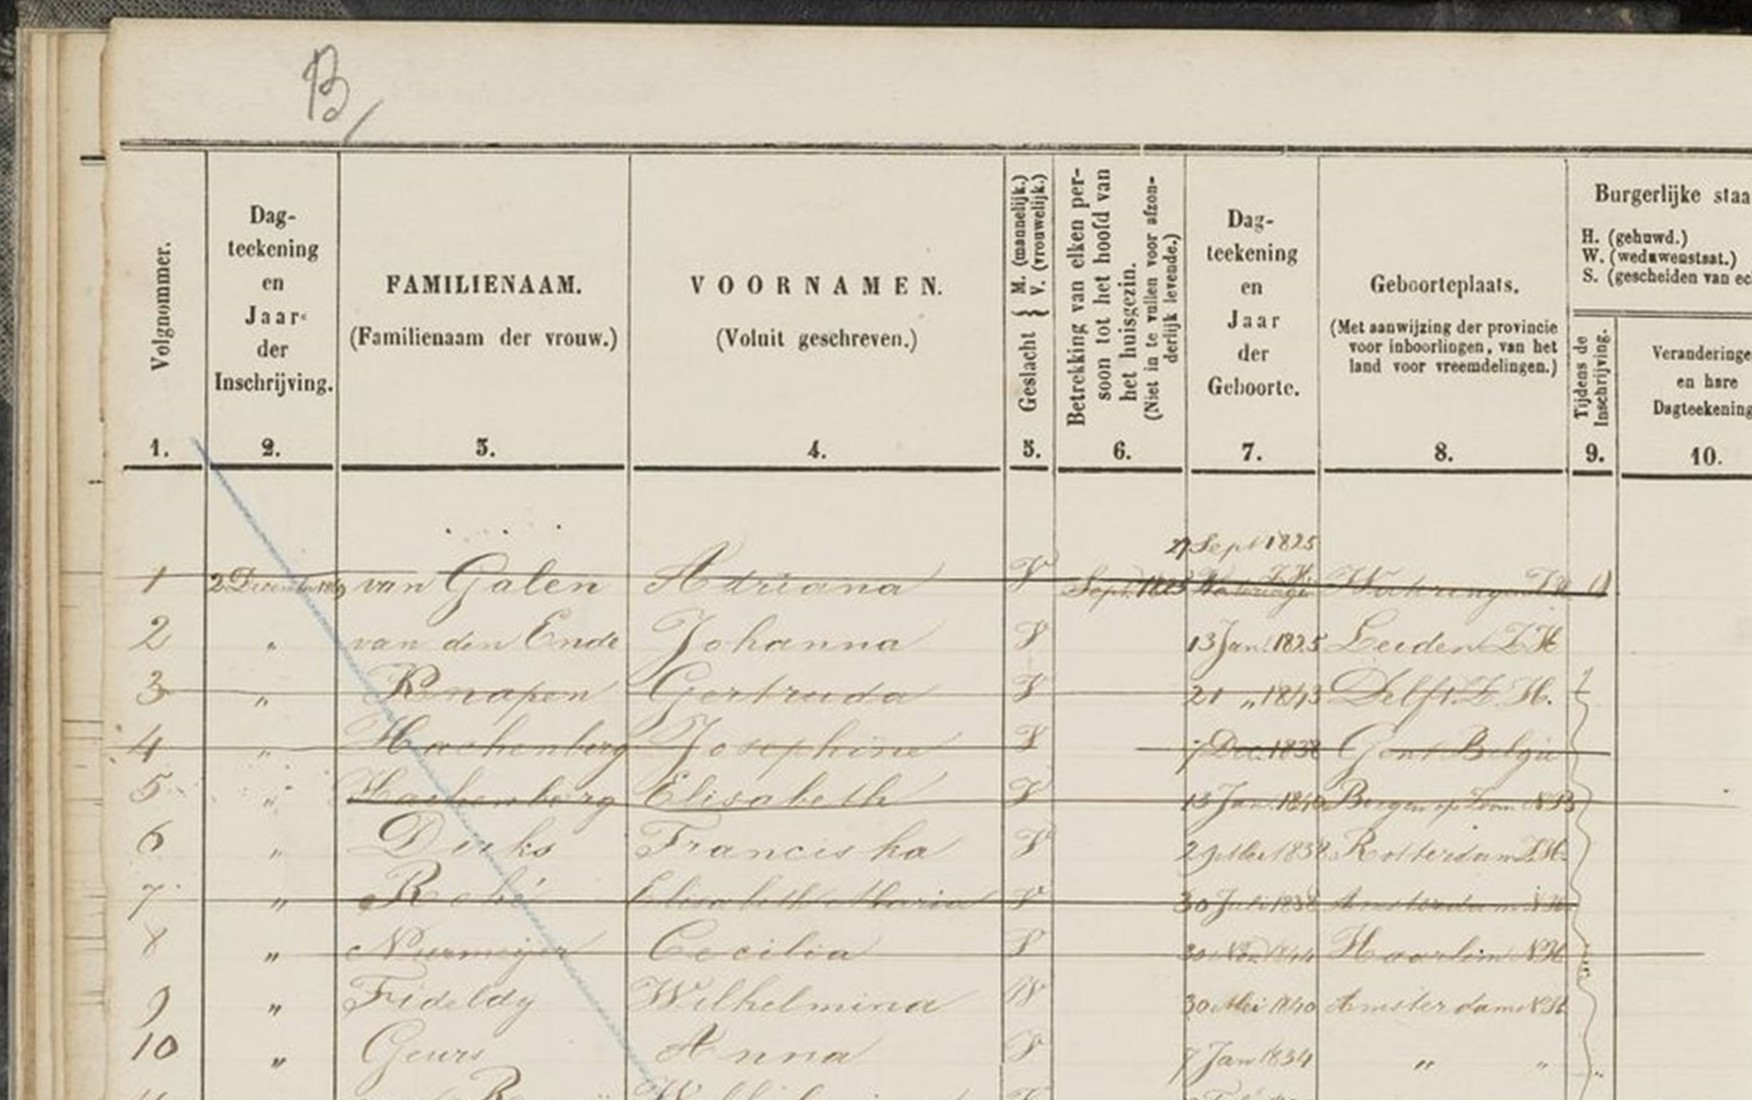 B
Volgnommer.
Dag-
teekening
en
Jaar
der
Inschrijving.
FAMILIENAAM.
(Familienaam der vrouw.)
VOORNAMEN.
(Voluit geschreven.)
Geslacht { M. (mannelijk.)
V. (vrouwelijk.)
Betrekking van elken per-
soon tot het hoofd van
het huisgezin.
(Niet in te vullen voor afzon-
derlijk levende.)
Dag-
teekening
en
Jaar
der
Geboorte.
Geboorteplaats.
(Met aanwijzing der provincie
voor inboorlingen, van het
land voor vreemdelingen.)
Burgerlijke staa
H. (gehuwd.)
W. (weduwenstaat.)
S. (gescheiden van ec
Tijdens de
Inschrijving.
Veranderinge
en hare
Dagteekening
1. 2. 3. 4. 5. 6. 7. 8. 9. 10.
27 Sept 1825
1 2 December van Galen Adriana V Sept. 1825 Wateringe Z.H.
2 " van den Ende Johanna V 13 Jan. 1825 Leiden Z.H.
3 " Knapen Gertruda V 21 " 1843 Delft Z.H.
4 " Hachenberg Josephine V 7 Dec. 1838 Gent Belgie
5 " Hachenberg Elisabeth V 13 Jan. 1840 Bergen op Zoom N.B.
6 " Dirks Franciska V 29 Mei 1838 Rotterdam Z.H.
7 " Elisabeth Maria V 30 Juli 1838 Amsterdam N.H.
8 " Cecilia V 30 Nov. 1844 Haarlem N.H.
9 " Fideldy Wilhelmina 30 Mei 1840 Amsterdam N.H.
10 " Geurs Anna V 7 Jan 1834 " "